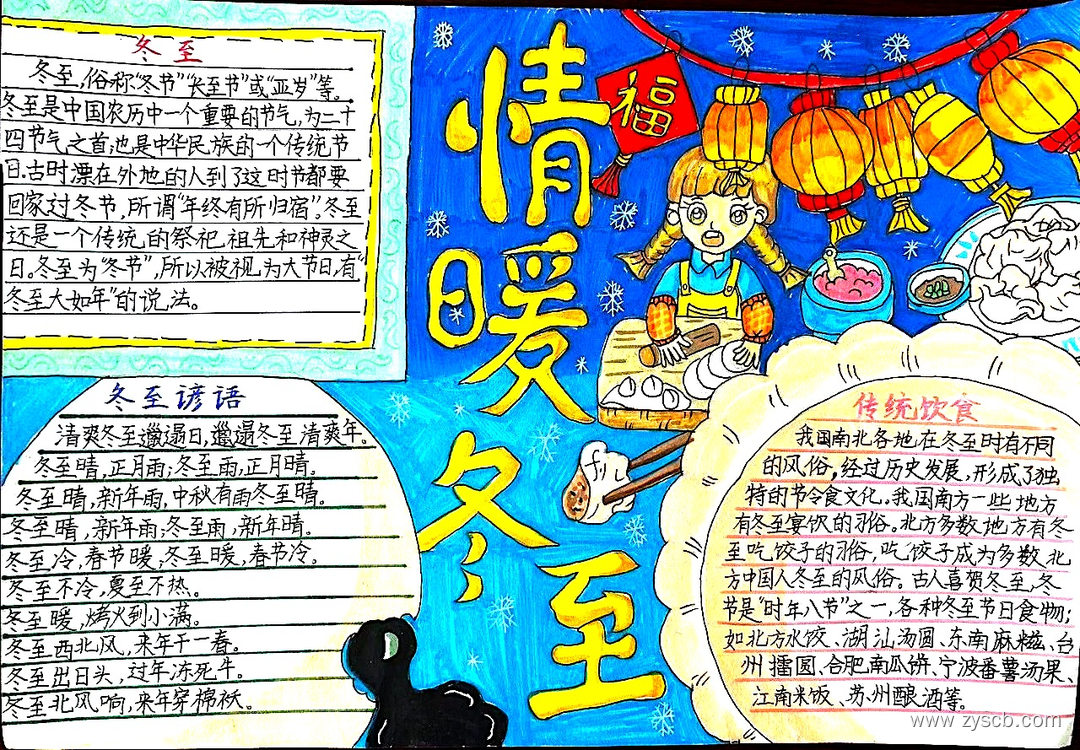 冬至
冬至，俗称“冬节”“长至节”或“亚岁”等。
冬至是中国农历中一个重要的节气，为二十
四节气之首；也是中华民族的一个传统节
日。古时漂在外地的人到了这时节都要
回家过冬节，所谓“年终有所归宿”。冬至
还是一个传统的祭祀祖先和神灵之
日。冬至为“冬节”，所以被视为大节日，有“
冬至大如年”的说法。
情暖冬至
福
冬至谚语
清爽冬至邋遢日，邋遢冬至清爽年。
冬至晴，正月雨；冬至雨，正月晴。
冬至晴，新年雨，中秋有雨冬至晴。
冬至晴，新年雨；冬至雨，新年晴。
冬至冷，春节暖；冬至暖，春节冷。
冬至不冷，夏至不热。
冬至暖，烤火到小满。
冬至西北风，来年干一春。
冬至出日头，过年冻死牛。
冬至北风响，来年穿棉袄。
传统饮食
我国南北各地在冬至时有不同
的风俗。经过历史发展，形成了独
特的节令食文化。我国南方一些地方
有冬至宴饮的习俗。北方多数地方有冬
至吃饺子的习俗，吃饺子成为多数北
方中国人冬至的风俗。古人喜贺冬至，冬
节是“时年八节”之一，各种冬至节日食物；
如北方水饺、湖汕汤圆、东南麻糍、台
州擂圆、合肥南瓜饼、宁波番薯汤果、
江南米饭、苏州酿酒等。
www.zyscb.com